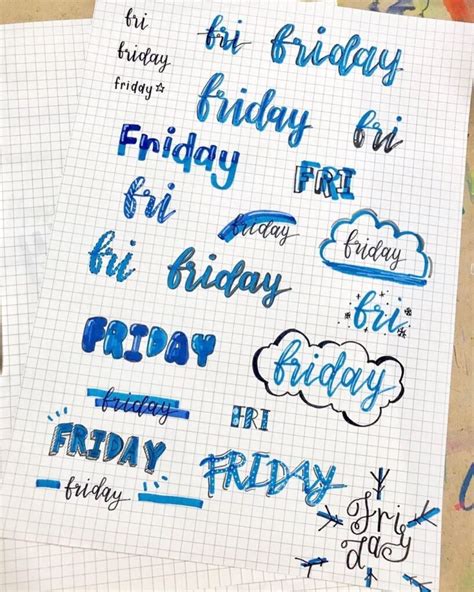 fri
fri friday
friday
friday☆
friday
fri
Friday
FRI
fri
friday
friday
fri friday
fri
FRIDAY
friday
friday
FRI
FRIDAY
FRIDAY
friday
Fri
day